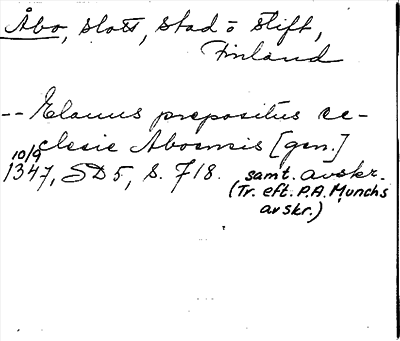 Åbo, slott, stad o stift,
Finland
-- Elauus prepositus ec-
clesie Aboensis [gen.]
10/9
1347, SD 5, s. 718. samt. avskr.
(Tr. eft. P.A. Munchs
avskr.)